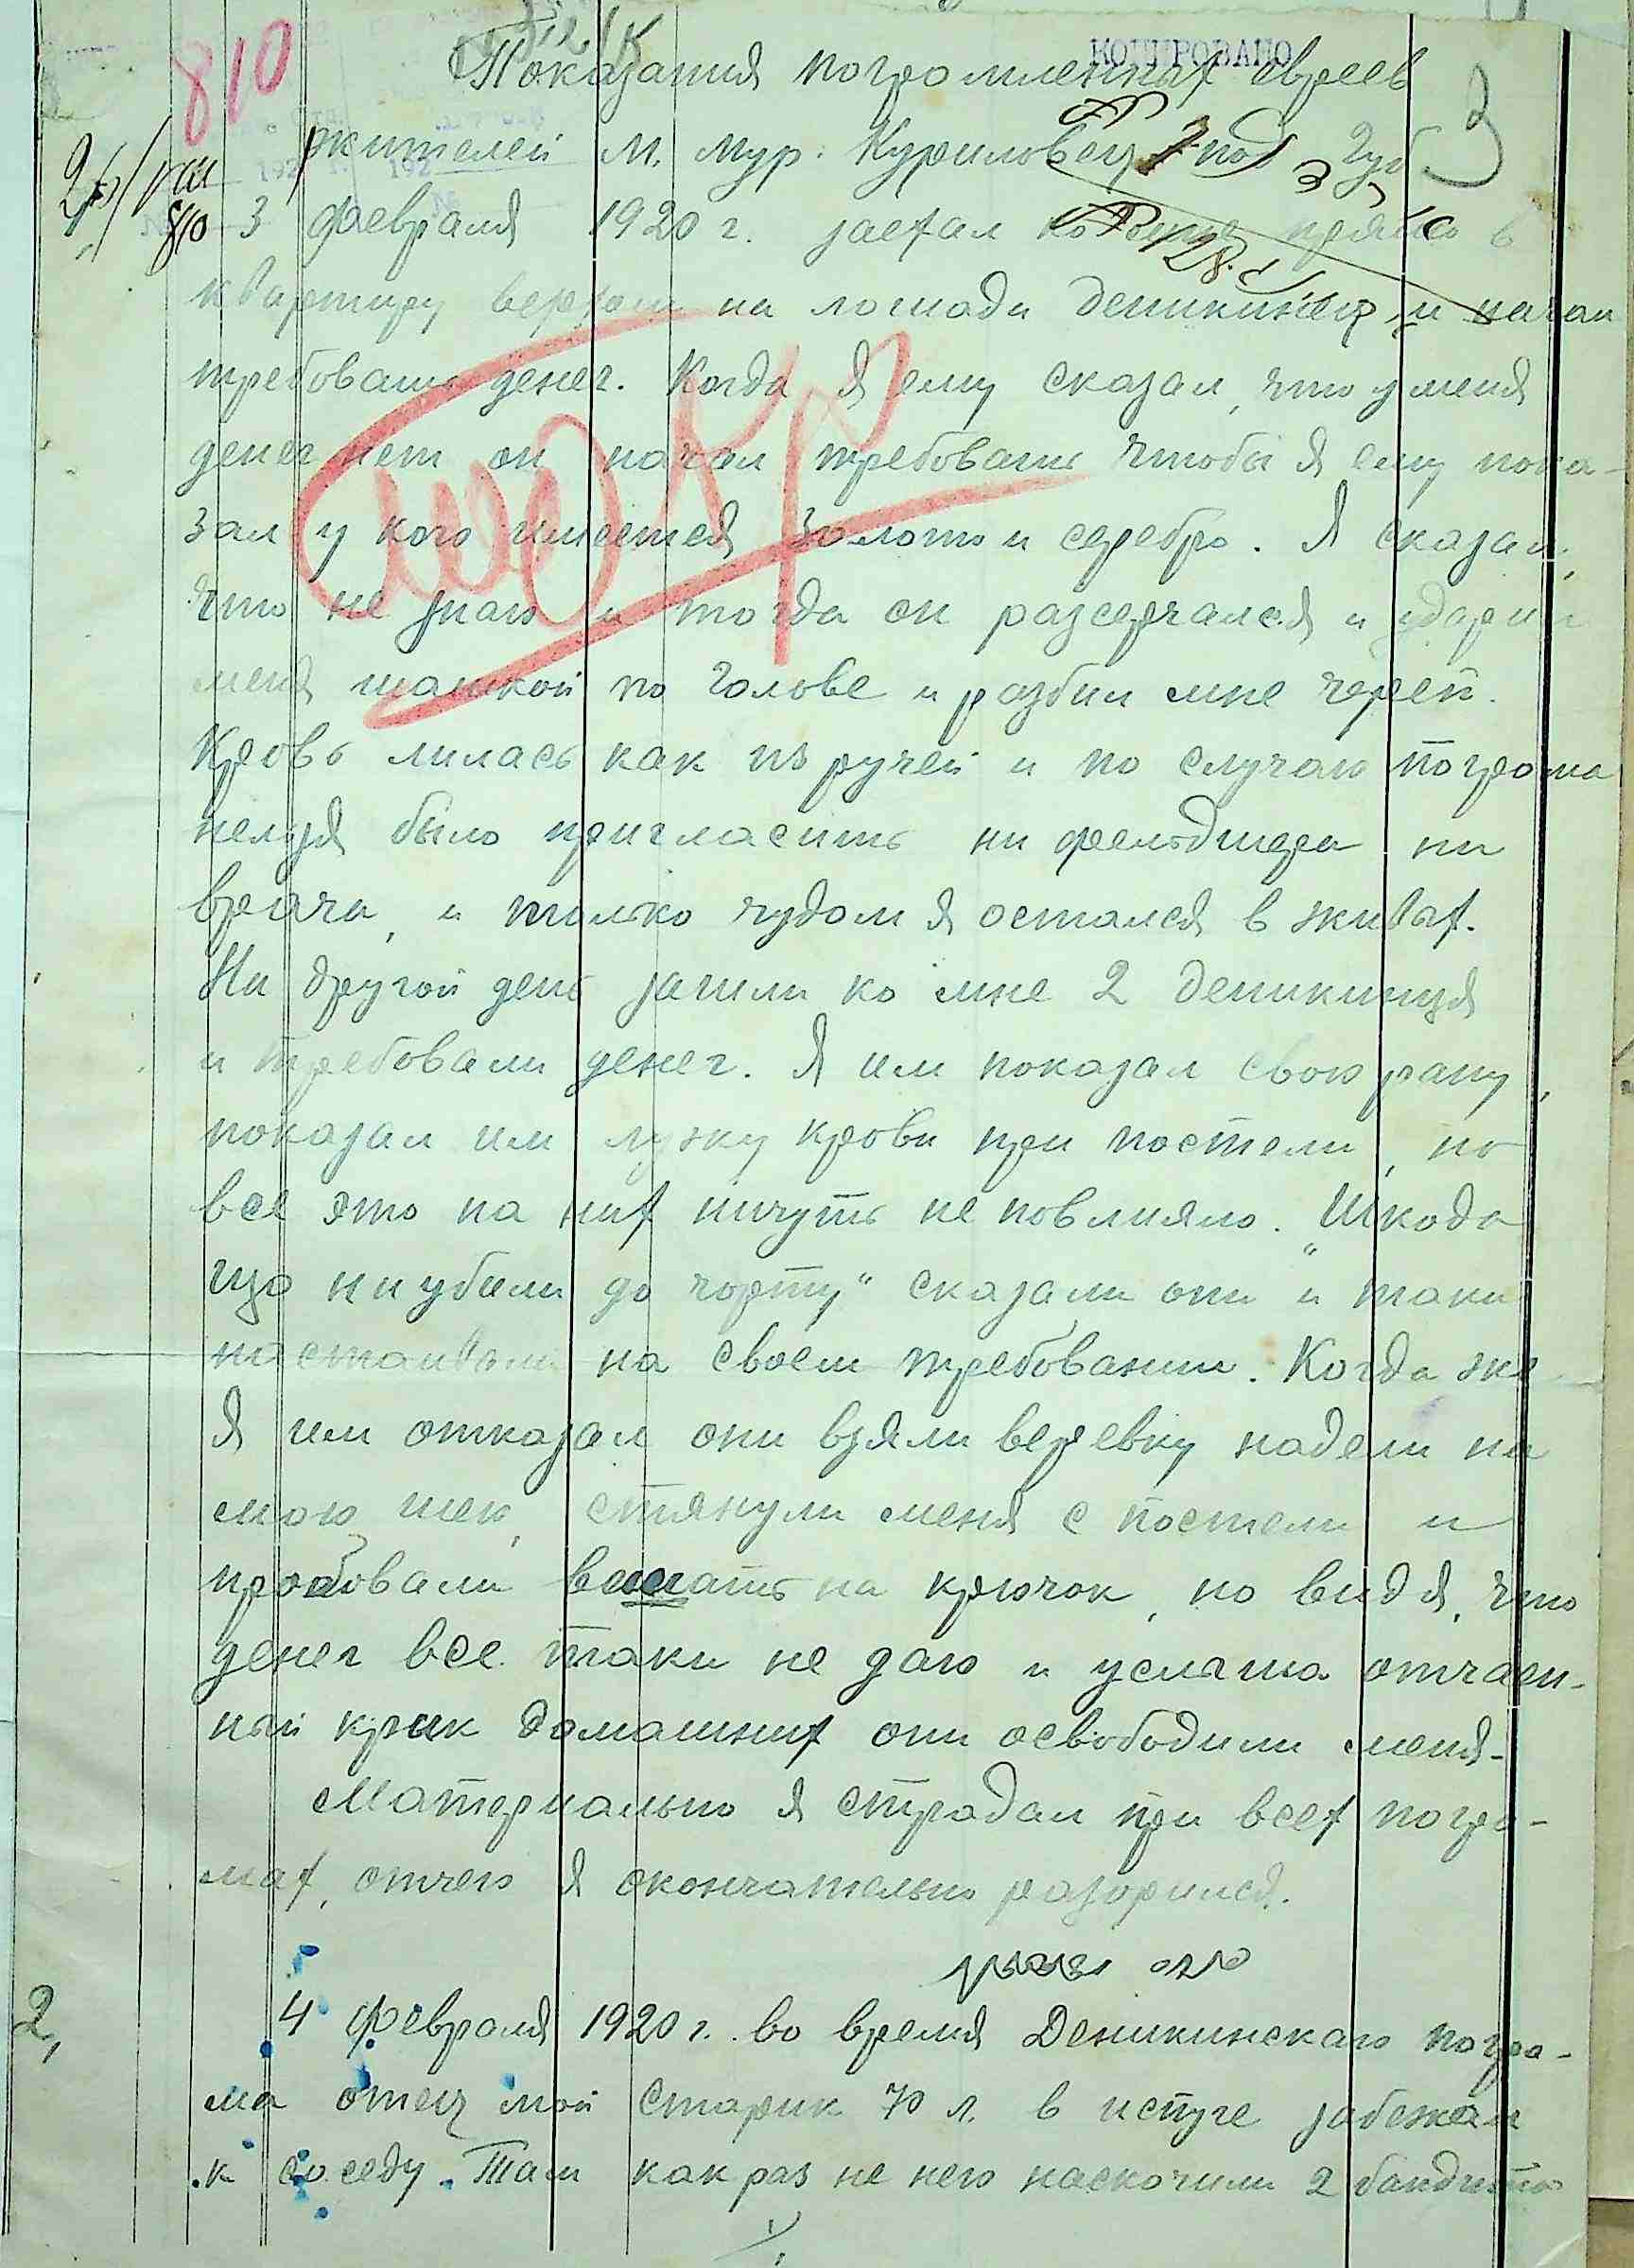 810
КОПИРОВАНО
Показания погромленных евреев
3
жителей М. Мур. Куриловец под. Губ
26/VIII
810
3 февраля 1920 г. заехал ко мне прямо в
квартиру верхом на лошади деникинец и начал
требовать денег. Когда я ему сказал, что у меня
денег нет он начал требовать чтобы я ему пока-
зал у кого имеется золото и серебро. Я сказал,
что не знаю и тогда он разсерчался и ударил
меня шашкой по голове и разбил мне череп.
Кровь лилась как из ручей и по случаю погрома
нельзя было пригласить ни фельдшера ни
врача, и только чудом я остался в живых.
На другой день зашли ко мне 2 деникинца
и требовали денег. Я им показал свою рану,
показал им лужу крови при постели, но
все это на них ничуть не повлияло. „Шкода
що ни убили до чорту" сказали они и таки
настаивали на своем требовании. Когда же
я им отказал они взяли веревку надели на
мою шею, стянули меня с постели и
пробовали вешать на крючок, но видя, что
денег все таки не даю и услыша отчаян-
ный крик домашних они освободили меня-
Материально я страдал при всех погро-
мах, отчего я окончательно разорился.
2,
4 Февраля 1920 г. во время Деникинскаго погро-
ма отец мой старик 70 л. в испуге забежал
к соседу. Там как раз не него наскочили 2 бандита